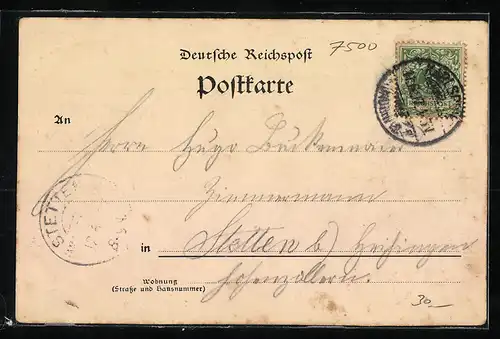 7500
Deutsche Reichspost
Postkarte
An
Herrn Hugo
Zimmermann
STETTEN
in Stetten b) Hechingen
Hohenzollern.
Wohnung
(Straße und Hausnummer)
30_